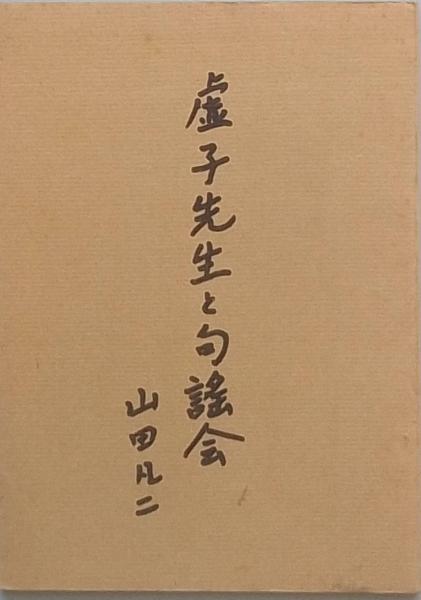 虚子先生と句謡会
山田凡二